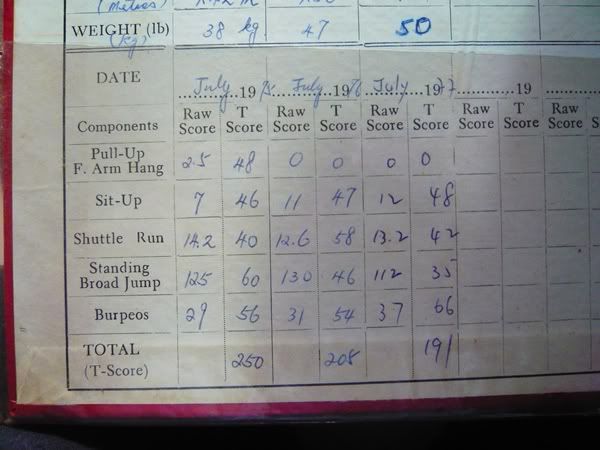 (Metres)
WEIGHT (lb) 38 kg 47 50
(kg)
DATE July 1975 July 1976 July 1977 19 19
Raw Score T Score Raw Score T Score Raw Score T Score Raw Score T Score Raw Score
Components
Pull-Up 2.5 48 0 0 0 0
F. Arm Hang
Sit-Up 7 46 11 47 12 48
Shuttle Run 14.2 40 12.6 58 13.2 42
Standing 125 60 130 46 112 35
Broad Jump
Burpeos 29 56 31 54 37 66
TOTAL 250 205 191
(T-Score)